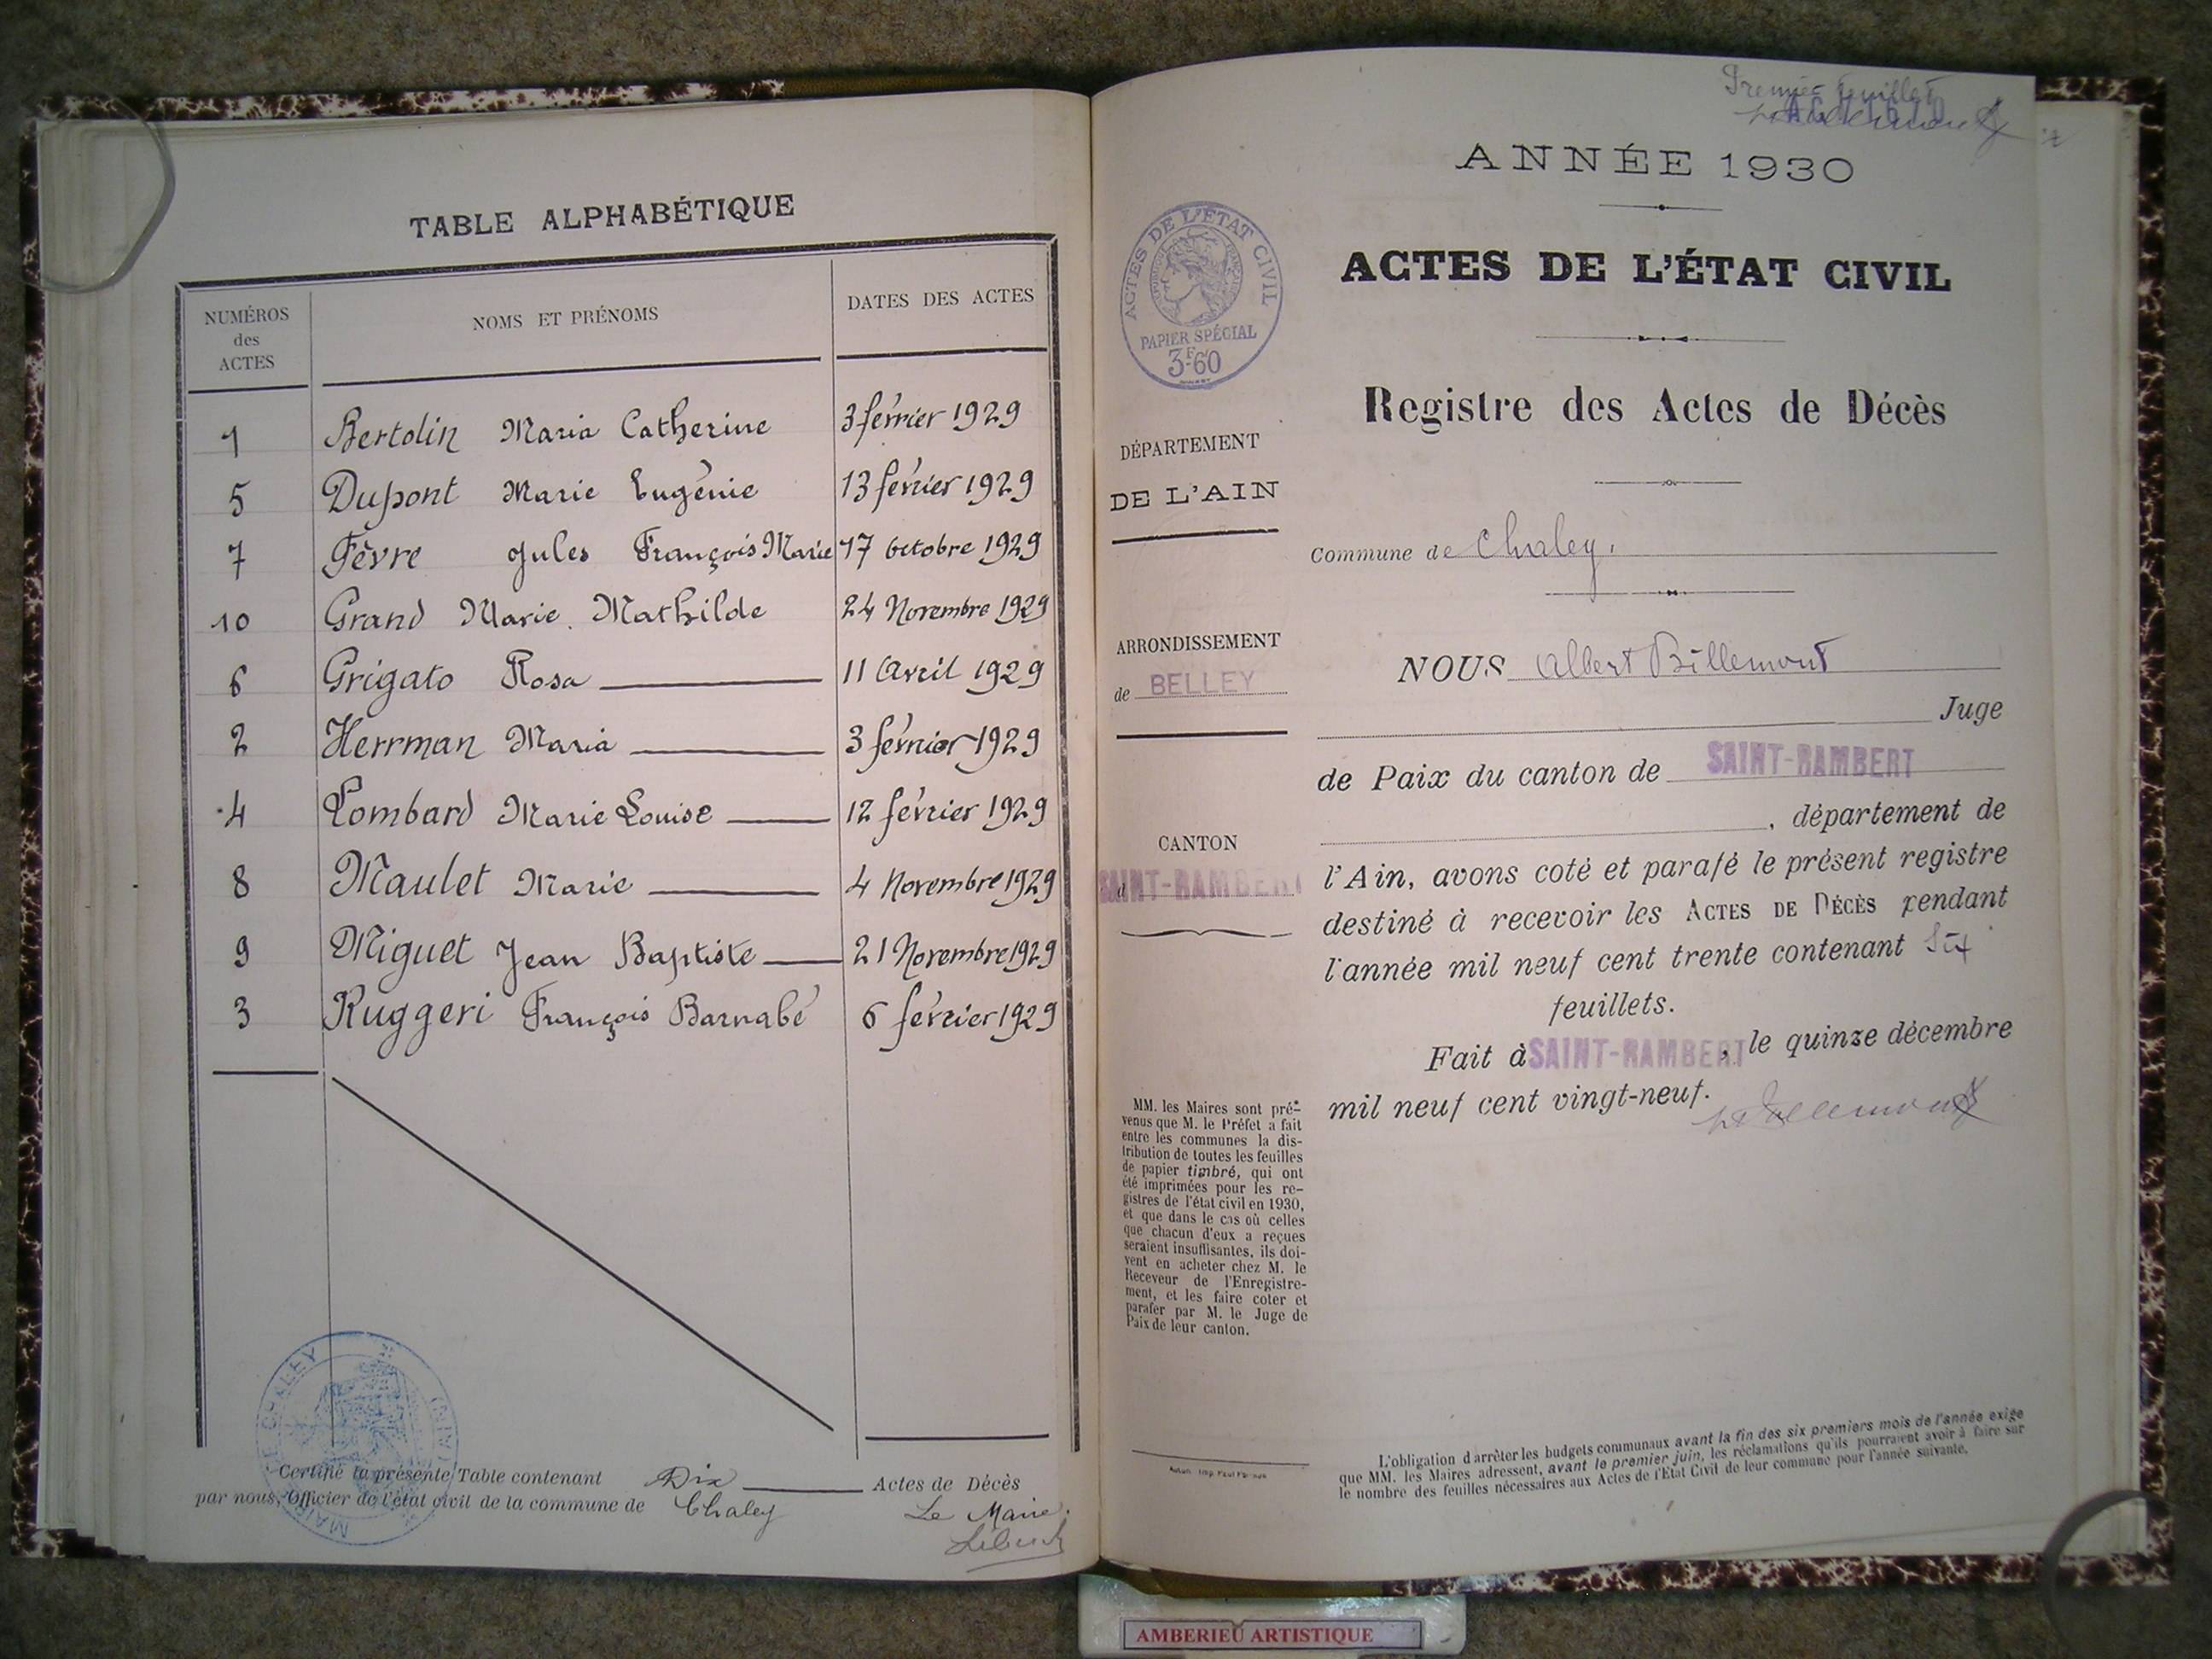 TABLE ALPHABÉTIQUE
NUMÉROS des ACTES NOMS ET PRÉNOMS DATES DES ACTES
1 Bertolin Maria Catherine 3 février 1929
5 Dupont Marie Eugénie 13 février 1929
7 Fèvre Jules François Marie 17 Octobre 1929
10 Grand Marie Mathilde 24 Novembre 1929
6 Grigato Rosa 11 Avril 1929
2 Herrman Maria 3 février 1929
4 Lombard Marie Louise 12 février 1929
8 Maulet Marie 4 Novembre 1929
9 Miguet Jean Baptiste 21 Novembre 1929
3 Ruggeri François Barnabé 6 février 1929
Certifié la présente Table contenant Dix Actes de Décès
par nous, Officier de l'état civil de la commune de Chaley
Le Maire
CHALEY
Premier feuillet
ANNÉE 1930
ACTES DE L'ÉTAT CIVIL
PAPIER SPÉCIAL
3F60
ACTES DE L'ÉTAT CIVIL
Registre des Actes de Décès
DÉPARTEMENT
DE L'AIN
Commune de Chaley.
ARRONDISSEMENT
de BELLEY
CANTON
d SAINT-RAMBERT
NOUS Albert Billemont
Juge
de Paix du canton de SAINT-RAMBERT
, département de
l'Ain, avons coté et parafé le présent registre
destiné à recevoir les ACTES DE DÉCÈS pendant
l'année mil neuf cent trente contenant Six
feuillets.
Fait à SAINT-RAMBERT, le quinze décembre
mil neuf cent vingt-neuf.
MM. les Maires sont pré-
venus que M. le Préfet a fait
entre les communes la dis-
tribution de toutes les feuilles
de papier timbré, qui ont
été imprimées pour les re-
gistres de l'état civil en 1930,
et que dans le cas où celles
que chacun d'eux a reçues
seraient insuffisantes, ils doi-
vent en acheter chez M. le
Receveur de l'Enregistre-
ment, et les faire coter et
parafer par M. le Juge de
Paix de leur canton.
L'obligation d'arrêter les budgets communaux avant la fin des six premiers mois de l'année exige
que MM. les Maires adressent, avant le premier juin, les réclamations qu'ils pourraient avoir à faire sur
le nombre des feuilles nécessaires aux Actes de l'Etat Civil de leur commune pour l'année suivante.
AMBERIEU ARTISTIQUE